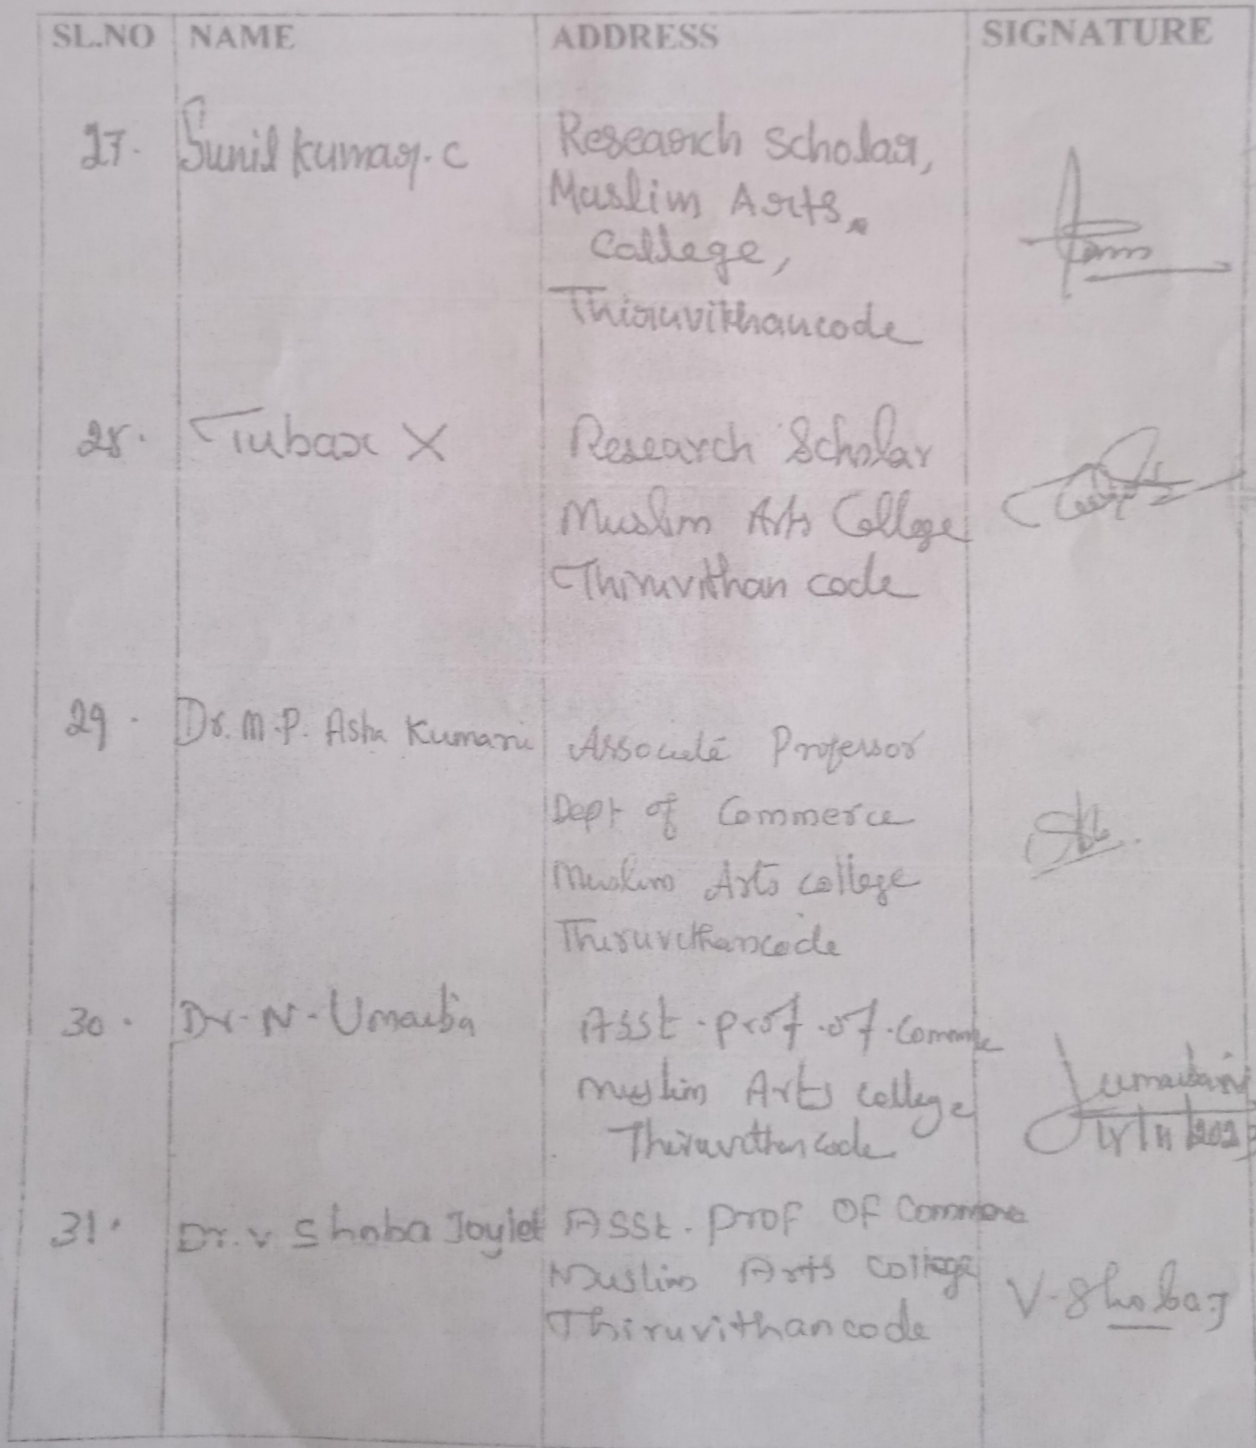 SL.NO NAME ADDRESS SIGNATURE
27. Sunil Kumar. C Research Scholar,
Muslim Arts,
College,
Thiruvikhancode
28. Tubax X Research Scholar
Muslim Arts College
Thiruvithan code
29. Dr. M.P. Asha Kumari Associate Professor
Dept of Commerce
Muslim Arts college
Thiruvithancode
30. Dr. N. Umaiba Asst. prof. of.
Muslim Arts college
Thiruvithancode
31. Dr. V Shoba Joylet Asst. Prof of Commerce
Muslim Arts college V. Shoba J
Thiruvithancode